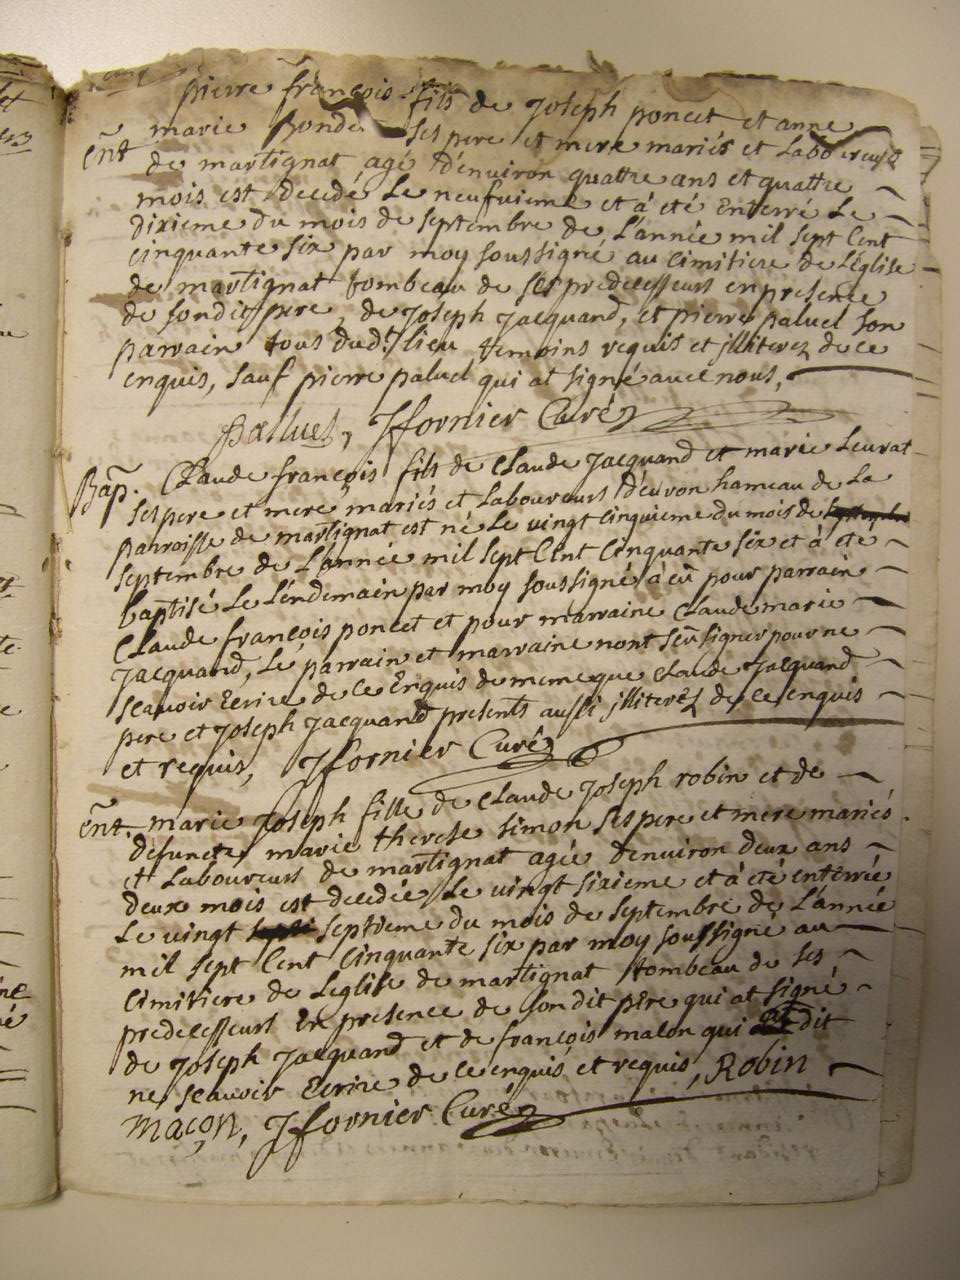 pierre françois fils de Joseph poncet et anne
Ent marie Bonde ses pere et mere mariés et Laboureurs
de martignat agé d'environ quattre ans et quattre
mois est decedé Le neufvieme et à eté Enterré Le
dixieme du mois de septembre de L'année mil sept Cent
cinquante six par moy soussigné au cimitiere de L'église
de martignat tombeau de ses predecesseurs en presence
de sondit pere, de Joseph Jacquand, et pierre paluel son
parrain tous dud.t lieu temoins requis et jlliterez de ce
enquis, sauf pierre paluel qui at signé avec nous,
Palluel, Jfornier Curé
Bap. Claude françois fils de Claude Jacquand et marie Leurat
ses pere et mere mariés et Laboureurs d'evron hameau de La
parroisse de martignat est né Le vingt cinquieme du mois de
septembre de L'année mil sept Cent Cinquante six et à eté
baptisé Le Lendemain par moy soussigné à eû pour parrain
Claude françois poncet et pour marraine Claude marie
Jacquand, Le parrain et marraine n'ont sçeu signer pour ne
sçavoir Ecrire de ce Enquis de meme que Claude Jacquand
pere et Joseph Jacquand presents aussi jlliterez de ce enquis
et requis, Jfornier Curé
Ent. marie Joseph fille de Claude Joseph robin et de
defuncte marie therese simon ses pere et mere mariés
et Laboureurs de martignat agée d'environ deux ans
deux mois est decedée Le vingt sixieme et à eté enterrée
Le vingt septieme du mois de septembre de L'année
mil sept Cent Cinquante six par moy soussigné au
Cimitiere de L'eglise de martignat tombeau de ses
predecesseurs En presence de sondit pere qui at signé
de Joseph Jacquand et de françois malon qui dit
ne scavoir Ecrire de ce enquis et requis, Robin
maçon, Jfornier Curé